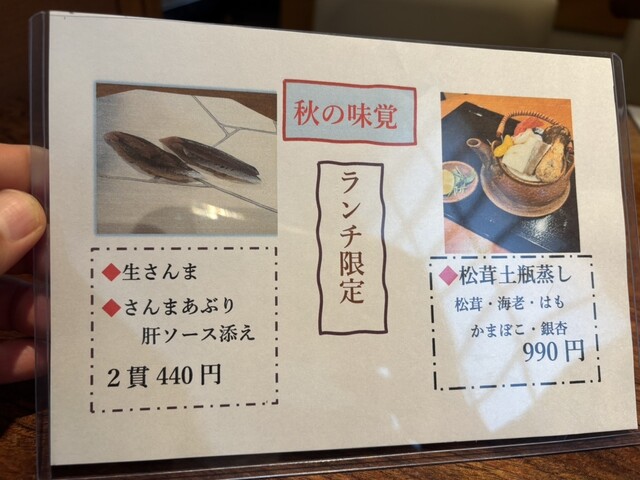 秋の味覚
ランチ限定
◆生さんま
◆さんまあぶり
肝ソース添え
2貫440円
◆松茸土瓶蒸し
松茸・海老・はも
かまぼこ・銀杏
990円